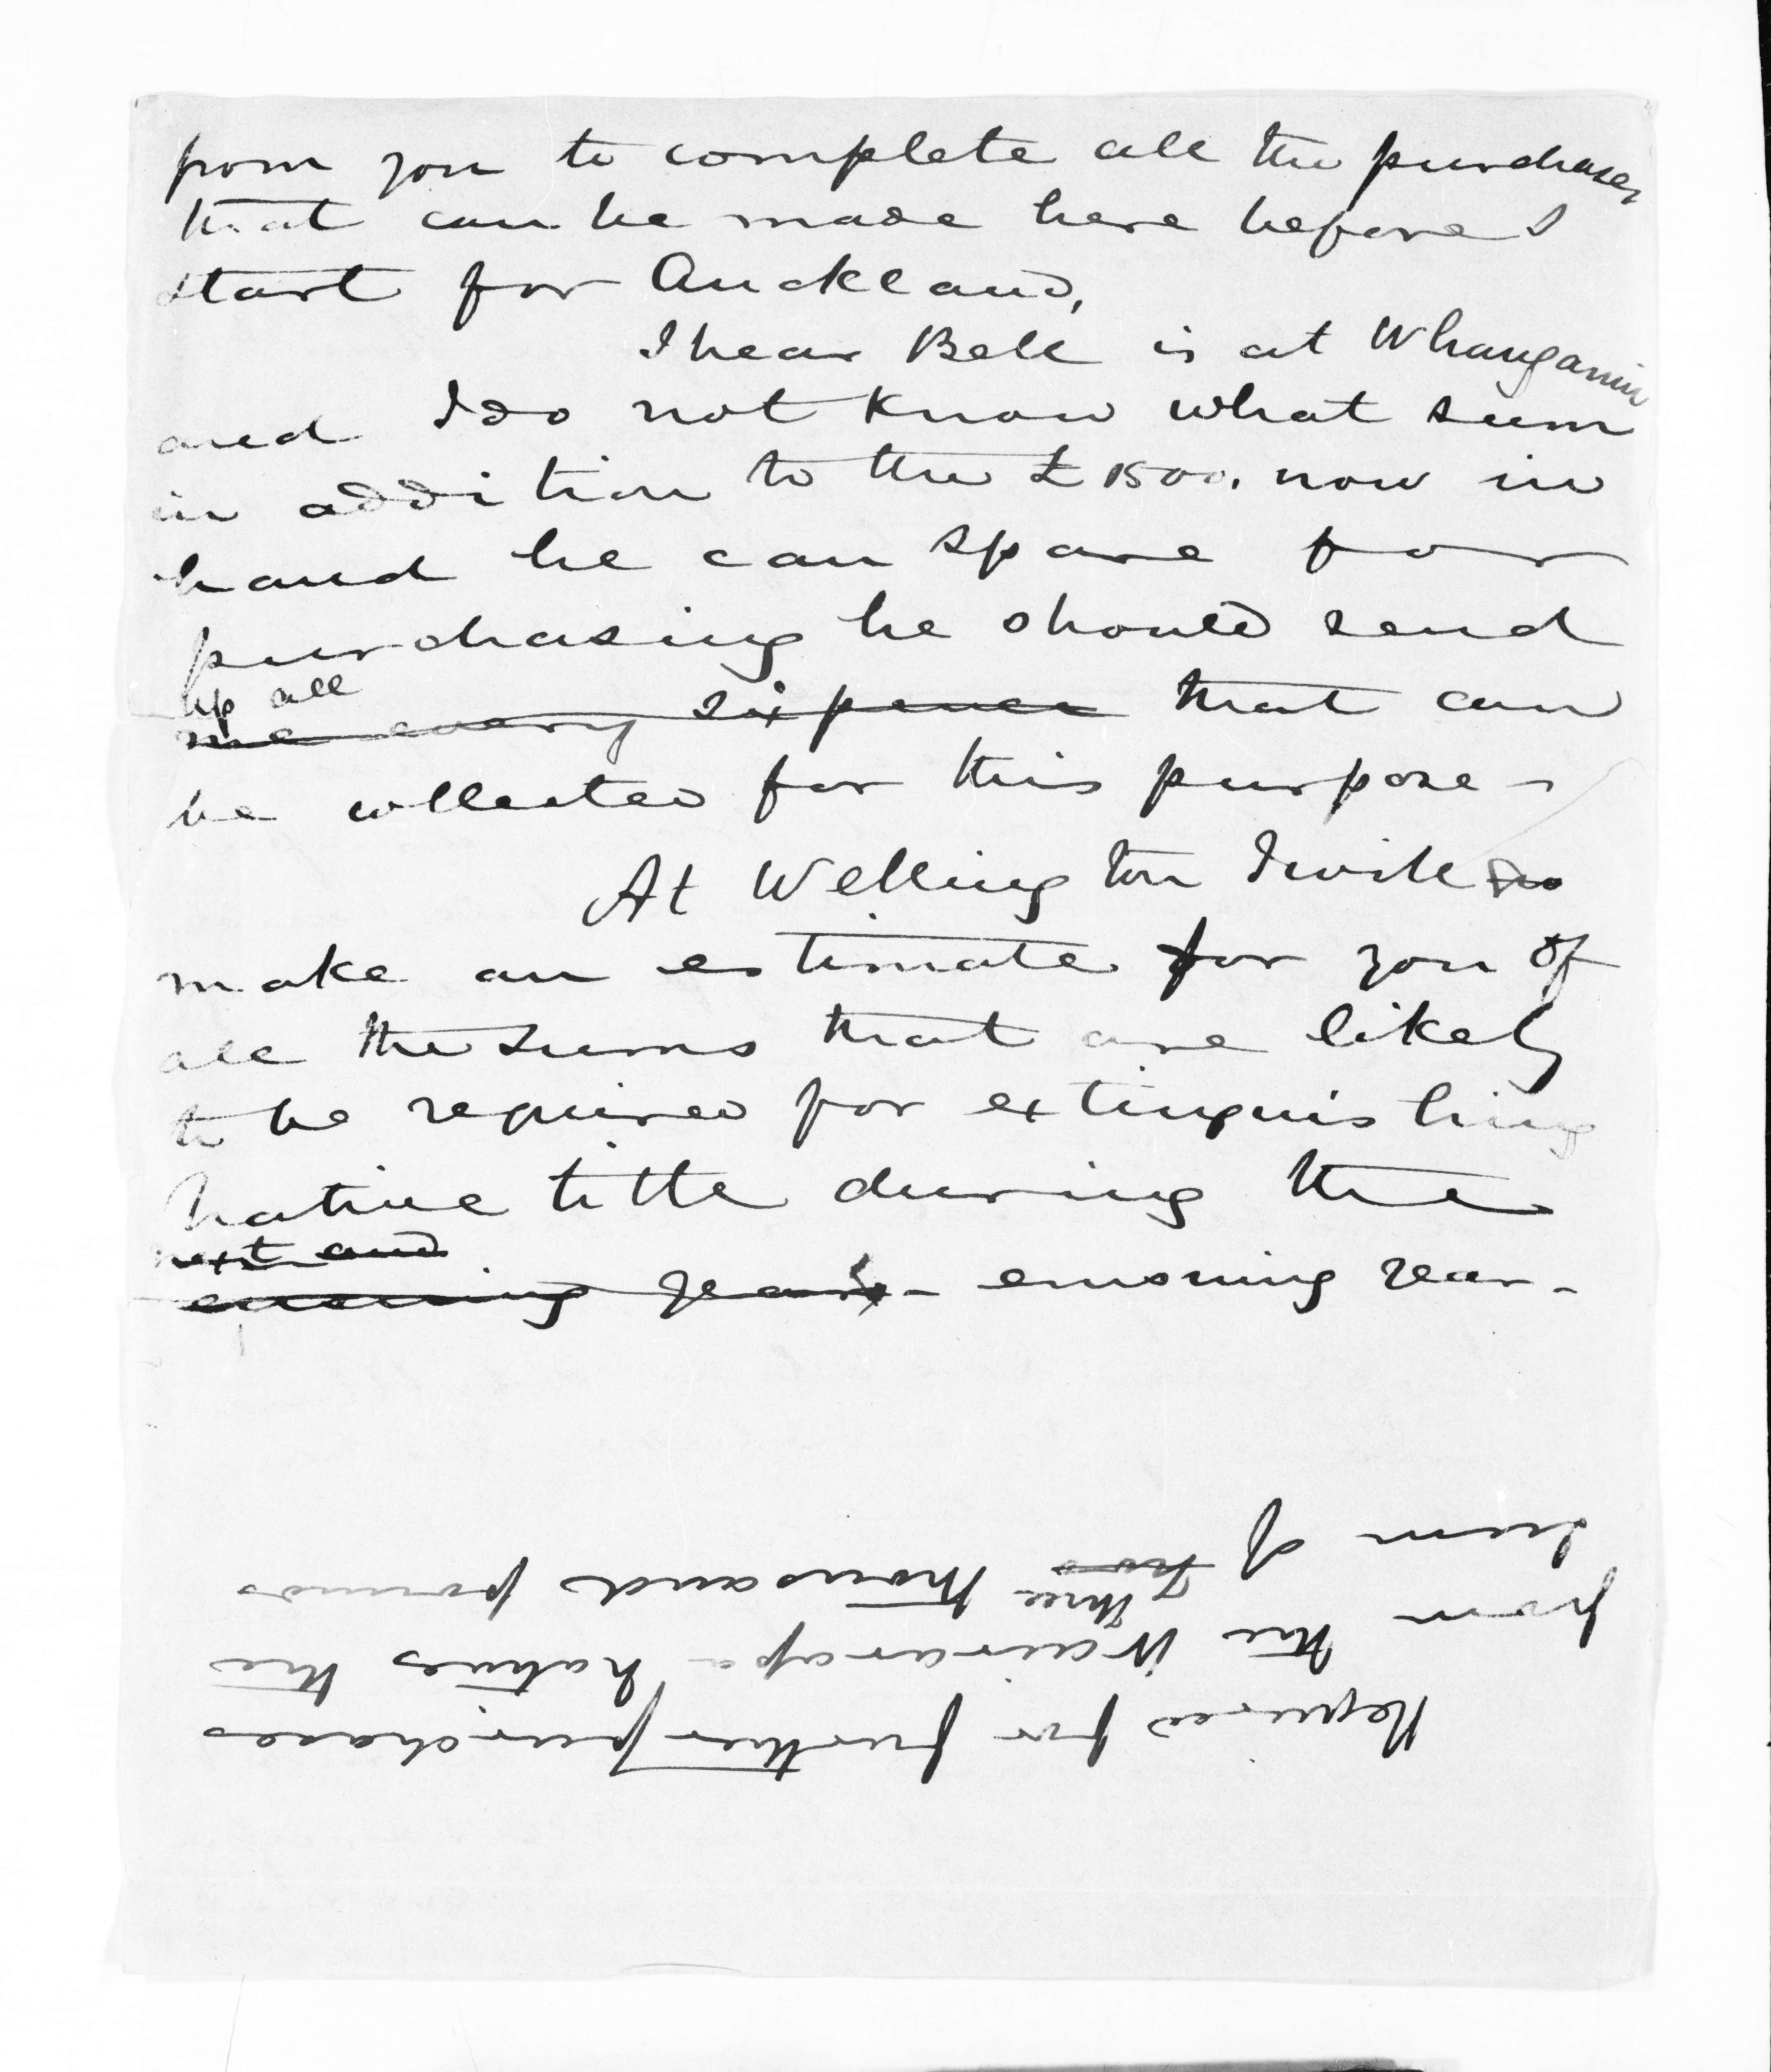 from you to complete all the purchases
that can be made here before I
start for Auckland,
I hear Bell is at Whanganui
and I do not know what sum
in addition to the £1500. now in
hand he can spare for
purchasing he should send
up all
me every sixpence that can
be collected for this purpose -
At Wellington I will
make an estimate for you of
all the sums that are likely
to be required for extinguishing
native title during the
next and
ensuing years - ensuing year -
Required for further purchases
from the Wairarapa natives the
three
sum of two thousand pounds